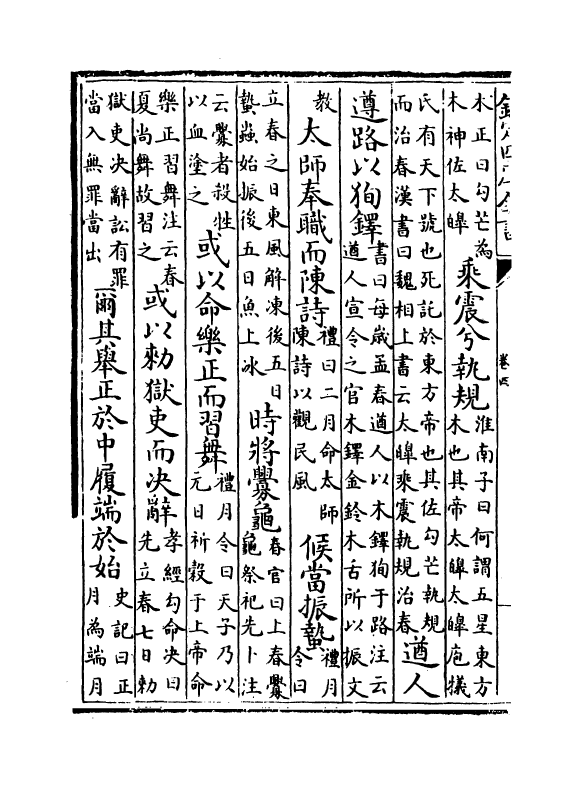 木正曰勾芒為
木神佐太皞
乘震兮執規
淮南子曰何謂五星東方
木也其帝太皞太皞庖犧
氏有天下號也死託於東方帝也其佐勾芒執規
而治春漢書曰魏相上書云太皞乘震執規治春
遒人
遵路以狥鐸
書曰每歲孟春遒人以木鐸狥于路注云
遒人宣令之官木鐸金鈴木舌所以振文
教
太師奉職而陳詩
禮曰二月命太師
陳詩以觀民風
候當振蟄
禮月
令曰
立春之日東風解凍後五日
蟄蟲始振後五日魚上冰
時將釁龜
春官曰上春釁
龜祭祀先卜注
云釁者殺牲
以血塗之
或以命樂正而習舞
禮月令曰天子乃以
元日祈穀于上帝命
樂正習舞注云春
夏尚舞故習之
或以勅獄吏而决辭
孝經勾命决曰
先立春七日勅
獄吏决辭訟有罪
當入無罪當出
爾其舉正於中履端於始
史記曰正
月為端月